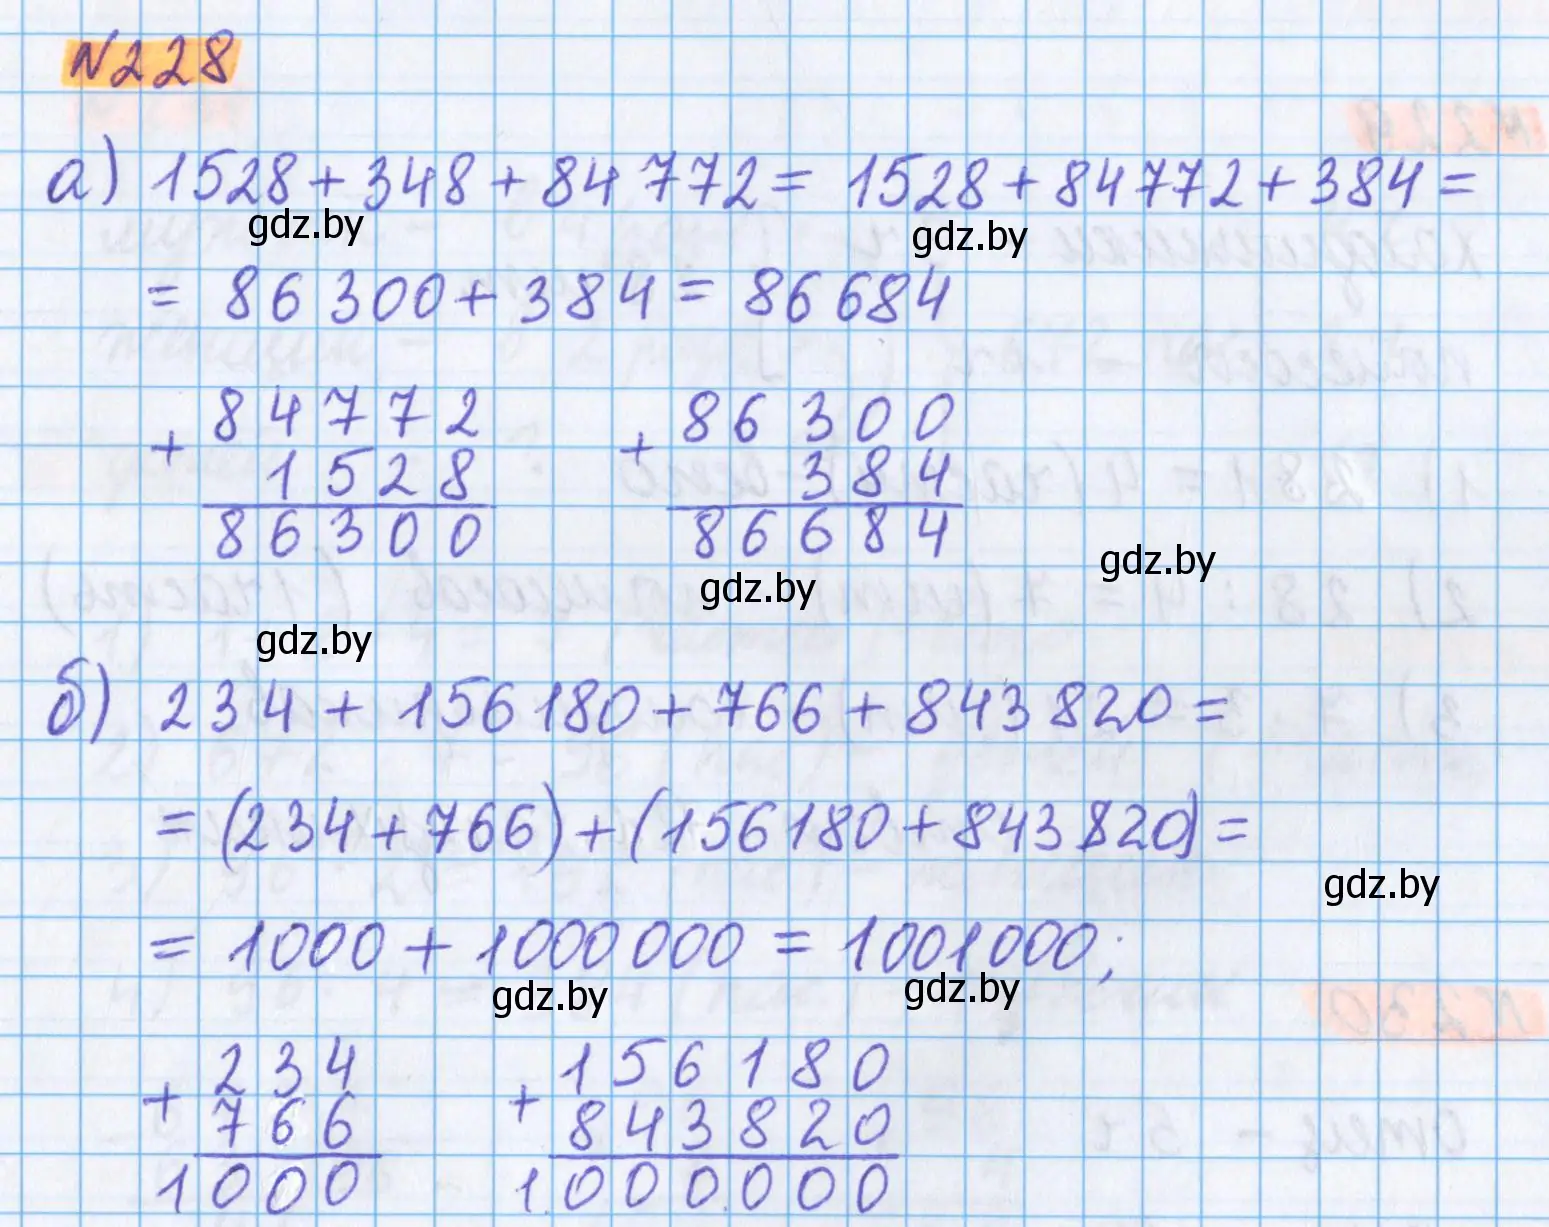 N228
а) 1528 + 348 + 84 772 = 1528 + 84772 + 384 =
gdz.by
gdz.by
= 86 300 + 384 = 86 684
84772
+
1528
86300
86 300
+
384
86684
gdz.by
gdz.by
gdz.by
б) 234 + 156 180 + 766 + 843 820 =
= (234 + 766) + (156 180 + 843 820) =
gdz.by
= 1000 + 1000 000 = 1001000;
gdz.by
gdz.by
234
+
766
1000
156180
+
843820
1000000